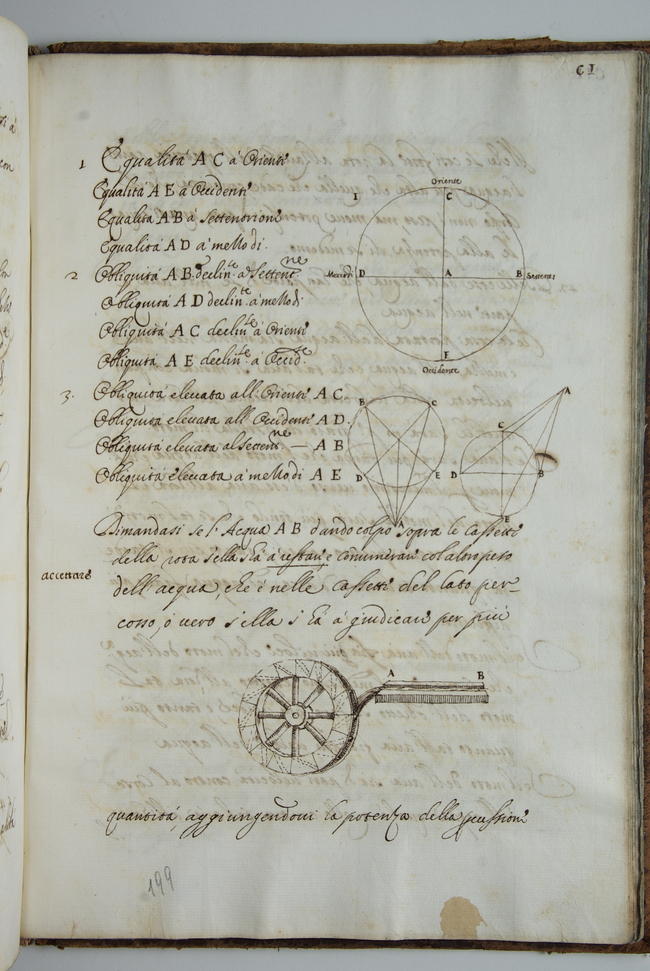 CI
1 Equalitá A C á Orienti
Equalitá A E á Occidenti
Equalitá A B á Settentrioni
Equalitá A D á mezzodi.
2 Obliquitá A B declin.te á Settent.ne
Obliquitá A D declin.te á mezzodi
Obliquitá A C declin.te á Orienti
Obliquitá A E declin.te á Occid.te
3. Obliquitá elevata all'Orienti A C.
Obliquitá elevata all'Occidenti A D.
Obliquitá elevata al Settent.ne — A B
Obliquitá elevata á mezzodi A E
I
Oriente
C
Mezzodi D A B Settentr.
E
Occidente
B C
D E
A
A
C
D B
E
Dimandasi se l'Acqua A B dando colpo sopra le cassetti
della rota s'ella s'há á e connumerari col altro peso
accettare
dell'acqua, che é nelle cassetti del lato per-
cosso, o vero s'ella s'há á giudicari per piú
A B
quantitá, aggiungendovi la potenza della
199